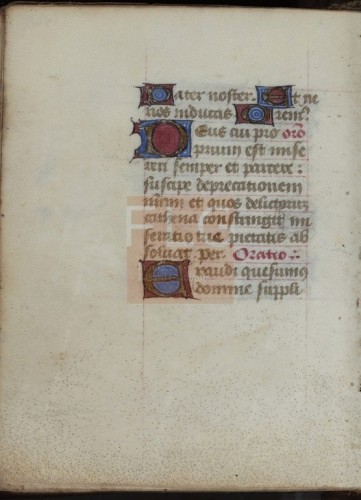 Pater noster. Et ne
nos inducas Orem9
Deus cui pro oro
prium est mise
reri semper et parcere :
suscipe deprecationem
nram et quos delictorum
cathena constringit mi
seratio tue pietatis ab
soluat per. Oratio :
Exaudi quesumus
domine suppli